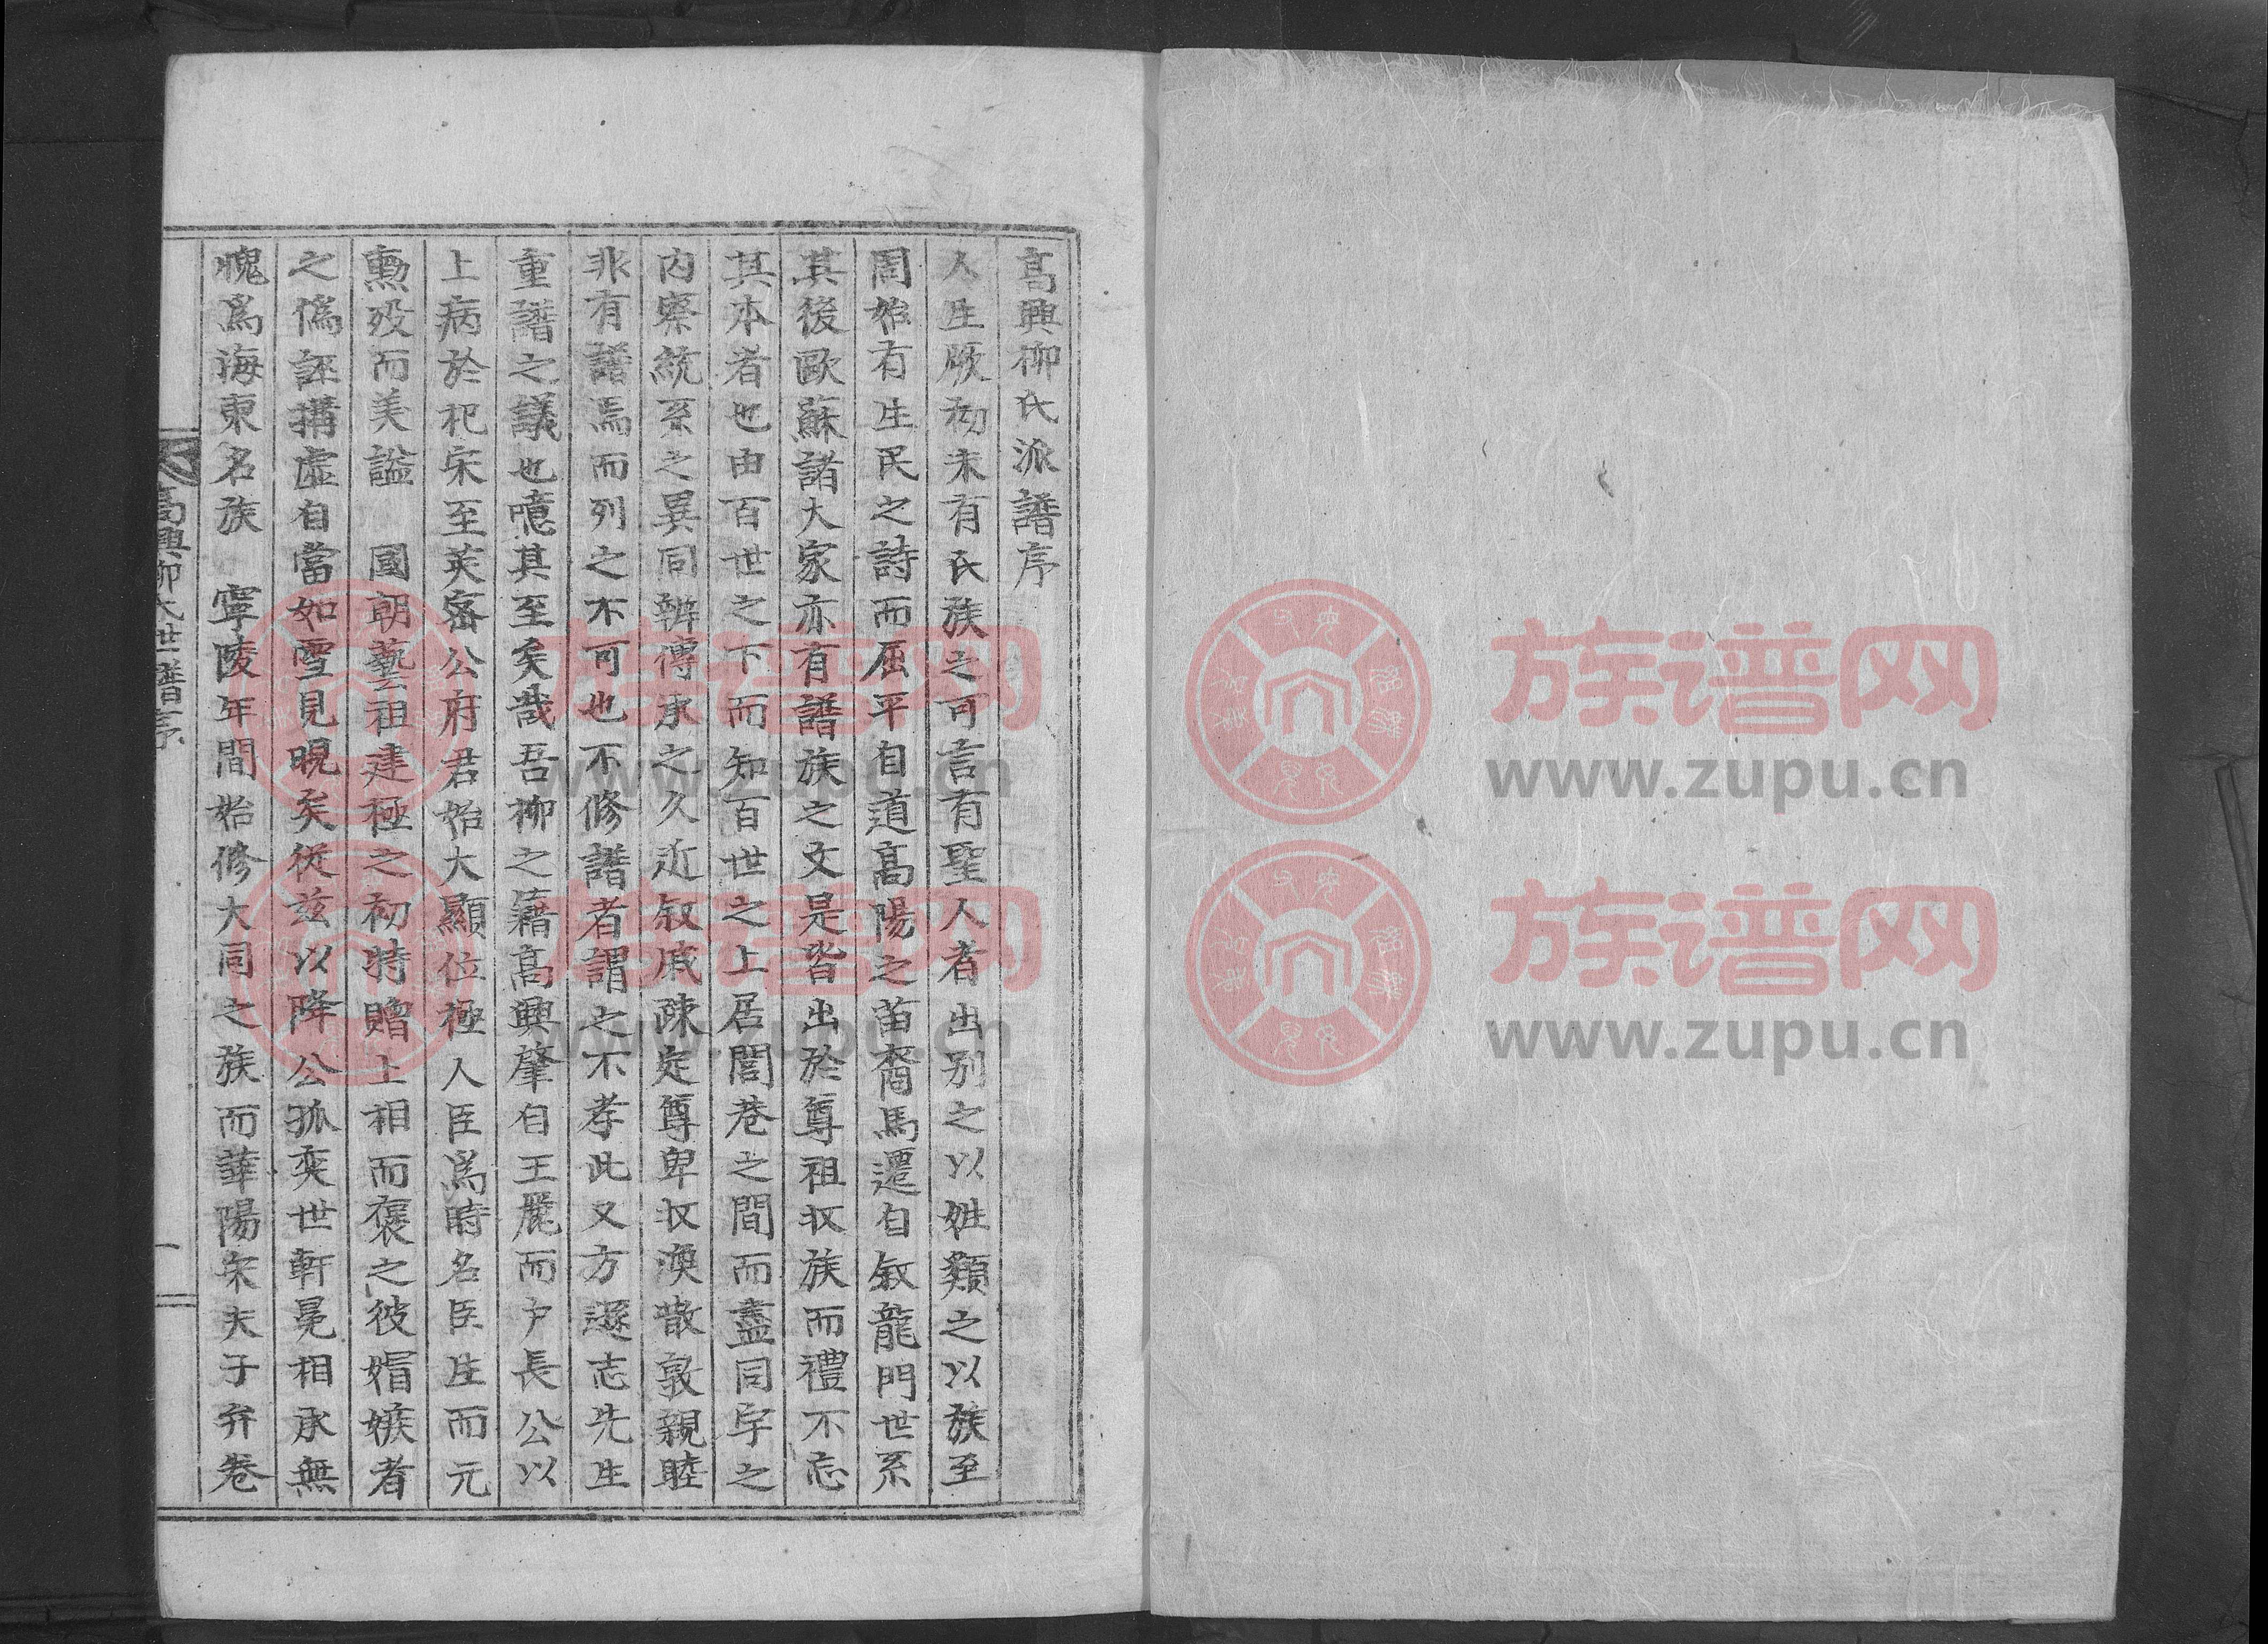 高興柳氏派譜序
人生厥初未有氏族之可言有聖人者出別之以姓類之以族至
周始有生民之詩而屈平自道高陽之苗裔馬遷自叙龍門世系
其後歐蘇諸大家亦有譜族之文是皆出於尊祖收族而禮不忘
其本者也由百世之下而知百世之上居閭巷之間而盡同宇之
內察統系之異同辨傳承之久近叙戚踈定尊卑收渙散敦親睦
非有譜焉而列之不可也不修譜者謂之不孝此又方遜志先生
重譜之議也噫其至矣哉吾柳之籍高興肇自王麗而戶長公以
上病於杞宋至英密公府君始大顯位極人臣爲時名臣生而元
勳歿而美謚 國朝藝祖建極之初特贈上相而褒之彼媢嫉者
之僞誣搆虛自當如雪見晛矣從玆以降公孤奕世軒冕相承無
愧爲海東名族 寧陵年間始修大同之族而華陽宋夫子弁卷
高興柳氏世譜序
一
族谱网
www.zupu.cn
族谱网
www.zupu.cn
族谱网
www.zupu.cn
族谱网
www.zupu.cn